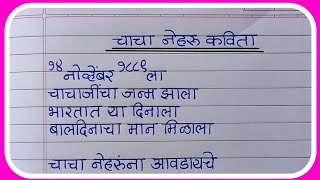 चाचा नेहरू कविता
१४ नोव्हेंबर १८८९ ला
चाचाजींचा जन्म झाला
भारतात या दिनाला
बालदिनाचा मान मिळाला
चाचा नेहरुंना आवडायचे